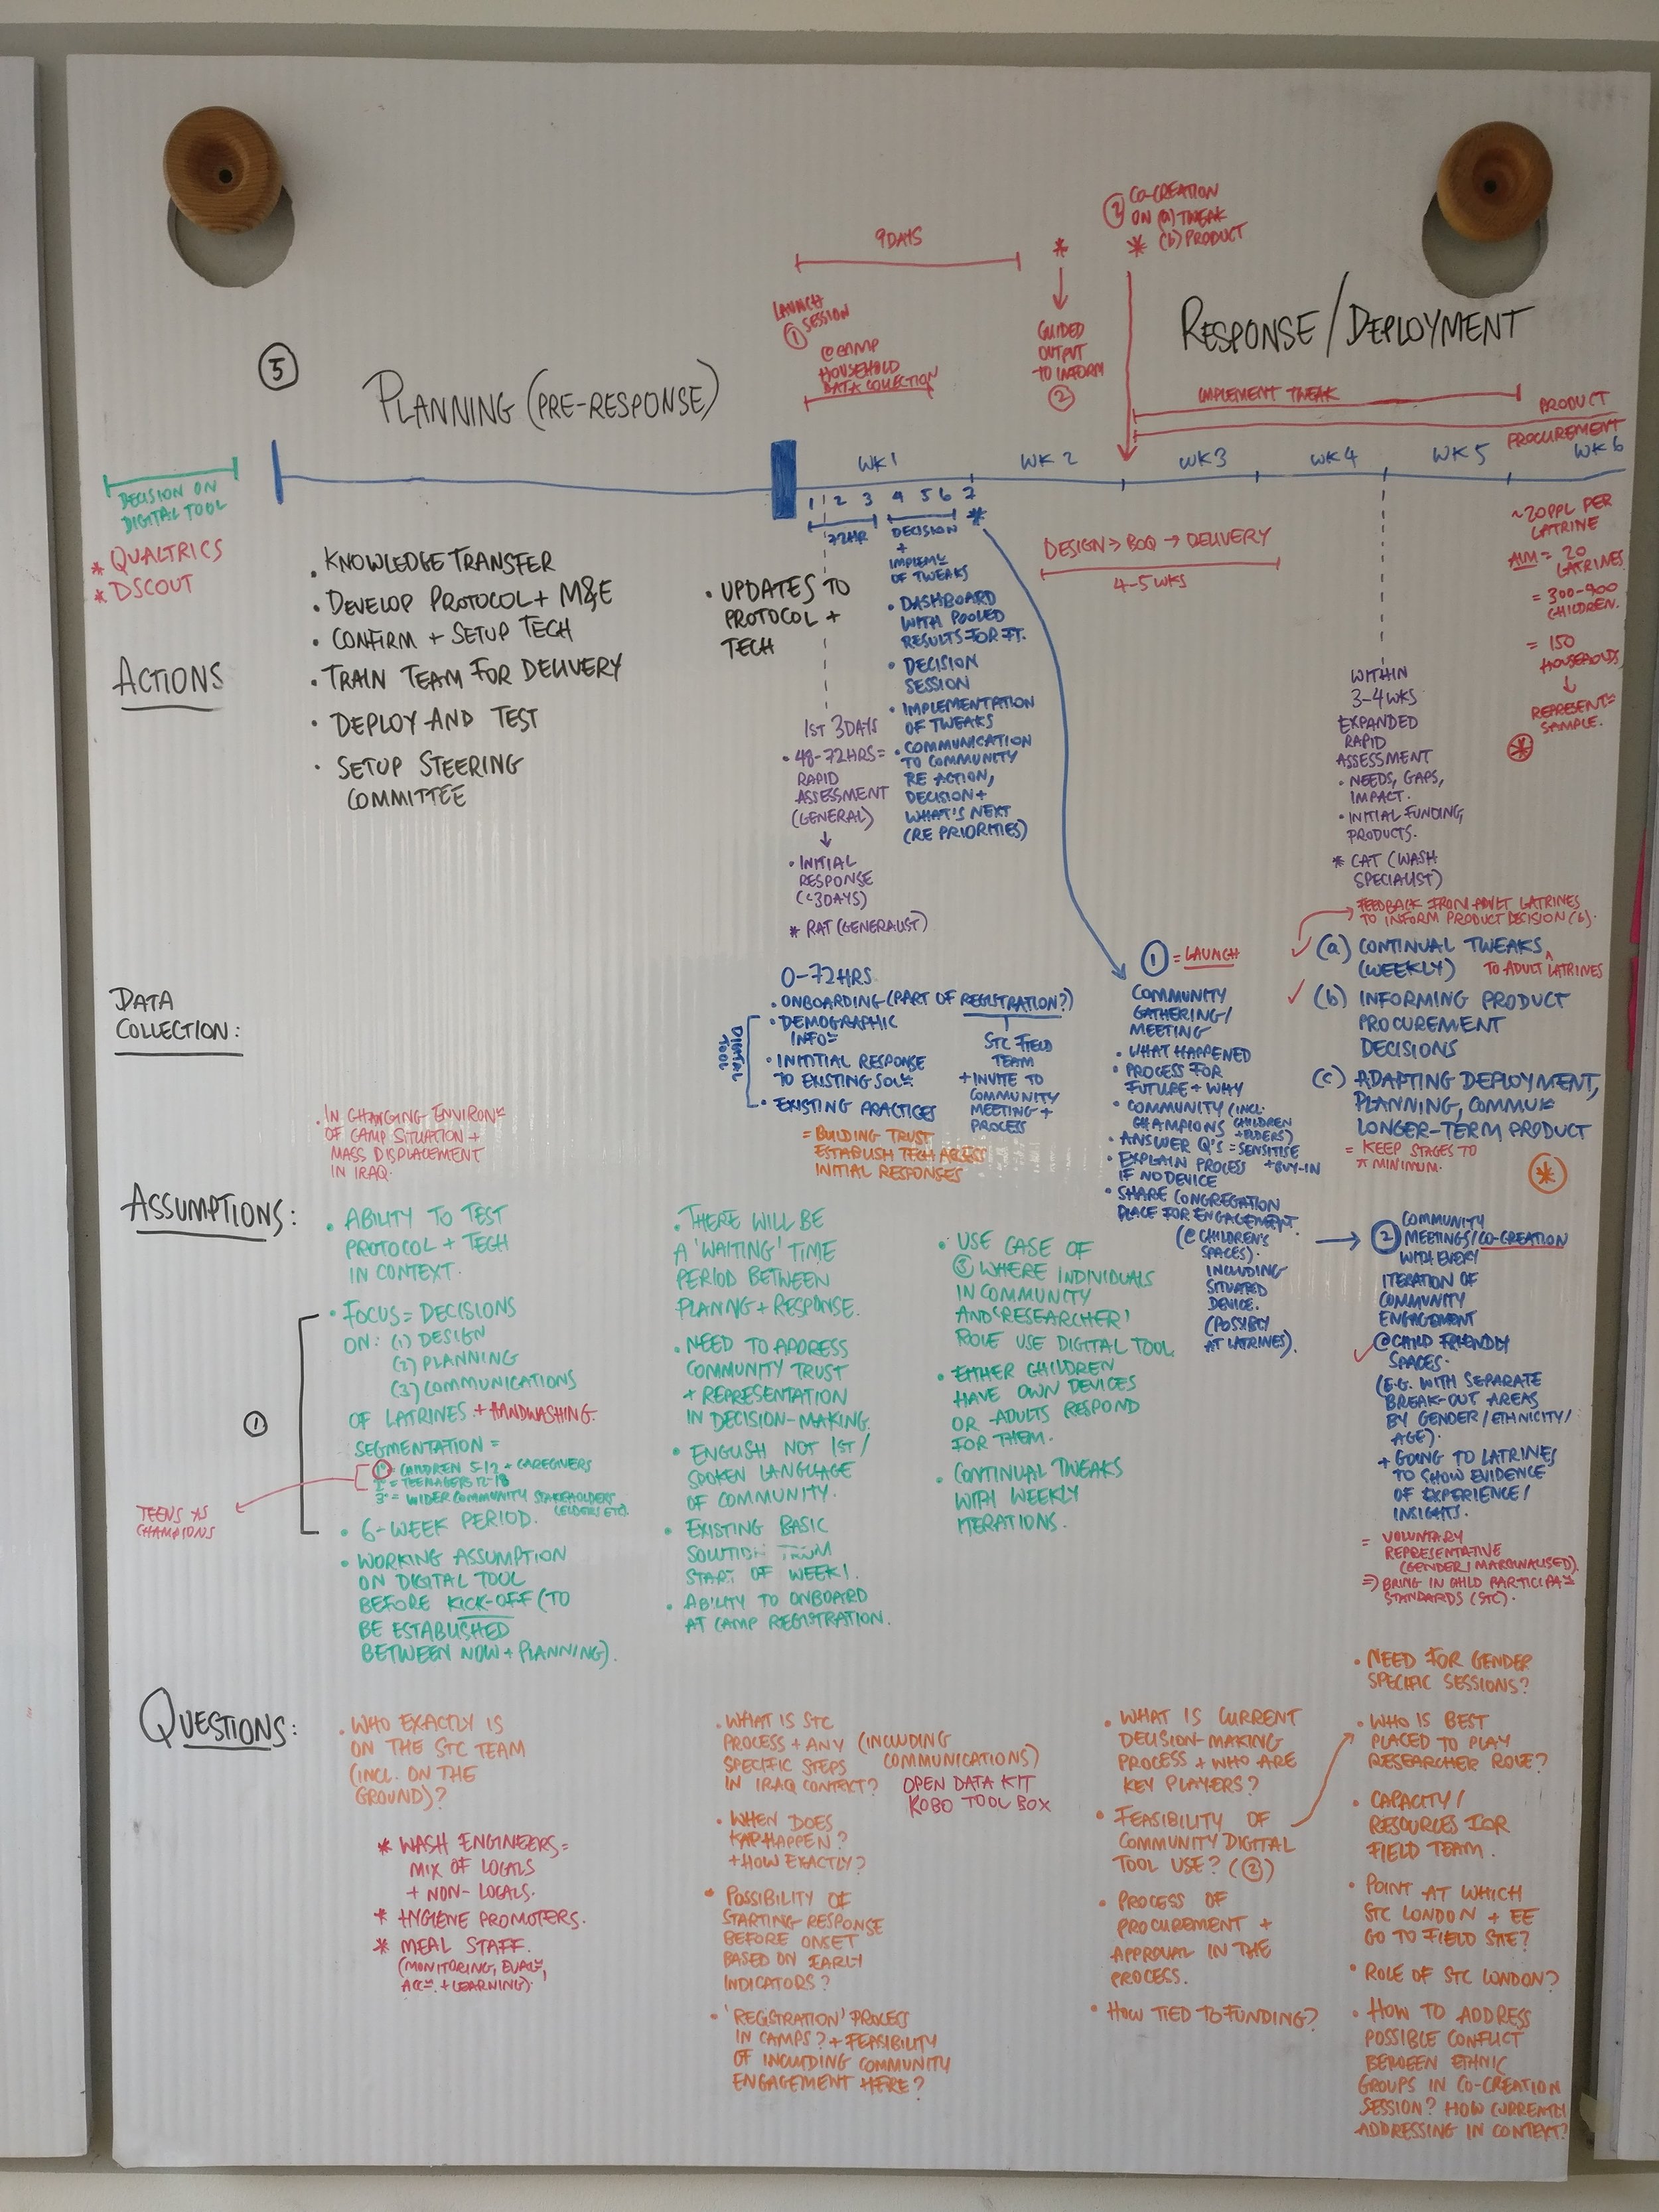 5
PLANNING (PRE-RESPONSE)
RESPONSE/DEPLOYMENT
9DAYS
LAUNCH
1 SESSION
@CAMP
HOUSEHOLD
DATA COLLECTION
*
GUIDED
OUTPUT
TO INFORM
2
2 CO-CREATION
ON (a) TWEAK
* (b) PRODUCT
IMPLEMENT TWEAK
PRODUCT
PROCUREMENT
DECISION ON
DIGITAL TOOL
* QUALTRICS
* DSCOUT
WK1
WK 2
WK3
WK4
WK5
WK6
1 2 3 4 5 6 7
72HR
*
DESIGN > BOQ → DELIVERY
4-5 WKS
~20PPL PER
LATRINE
AIM = 20
LATRINES
= 300-900
CHILDREN.
= 150
HOUSEHOLDS
↓
REPRESENT=
SAMPLE.
*
ACTIONS
• KNOWLEDGE TRANSFER
• DEVELOP PROTOCOL + M&E
• CONFIRM + SETUP TECH
• TRAIN TEAM FOR DELIVERY
• DEPLOY AND TEST
• SETUP STEERING
COMMITTEE
• UPDATES TO
PROTOCOL +
TECH
1ST 3DAYS
• 48-72HRS =
RAPID
ASSESSMENT
(GENERAL)
↓
• INITIAL
RESPONSE
(<3DAYS)
* RAT (GENERALIST)
DECISION
+
IMPLEM=
OF TWEAKS
• DASHBOARD
WITH POOLED
RESULTS FOR FT.
• DECISION
SESSION
• IMPLEMENTATION
OF TWEAKS
• COMMUNICATION
TO COMMUNITY
RE ACTION,
DECISION +
WHAT'S NEXT
(RE PRIORITIES)
WITHIN
3-4 WKS
EXPANDED
RAPID
ASSESSMENT
• NEEDS, GAPS,
IMPACT.
• INITIAL FUNDING,
PRODUCTS.
* CAT (WASH
SPECIALIST)
DATA
COLLECTION:
0-72HRS.
• ONBOARDING (PART OF REGISTRATION?)
DIGITAL
TOOL
• DEMOGRAPHIC
INFO=
• INITITIAL RESPONSE
TO EXISTING SOL=
• EXISTING PRACTICES
STC FIELD
TEAM
+ INVITE TO
COMMUNITY
MEETING +
PROCESS
= BUILDING TRUST
ESTABLISH TECH ACCESS
INITIAL RESPONSES
1 = LAUNCH
COMMUNITY
GATHERING/
MEETING
• WHAT HAPPENED
• PROCESS FOR
FUTURE + WHY
• COMMUNITY (INCL.
CHAMPIONS CHILDREN
+ ELDERS)
• ANSWER Q'S = SENSITISE
+ BUY-IN
• EXPLAIN PROCESS
IF NO DEVICE
• SHARE CONGREGATION
PLACE FOR ENGAGEMENT.
(@ CHILDREN'S
SPACES).
INCLUDING
SITUATED
DEVICE.
(POSSIBLY
AT LATRINES).
FEEDBACK FROM ADULT LATRINES
TO INFORM PRODUCT DECISION (b).
(a) CONTINUAL TWEAKS
(WEEKLY) TO ADULT LATRINES
(b) INFORMING PRODUCT
PROCUREMENT
DECISIONS
(c) ADAPTING DEPLOYMENT,
PLANNING, COMMU=
LONGER-TERM PRODUCT
= KEEP STAGES TO
A MINIMUM.
*
2 COMMUNITY
MEETINGS/CO-CREATION
WITH EVERY
ITERATION OF
COMMUNITY
ENGAGEMENT
@ CHILD FRIENDLY
SPACES.
(E.G. WITH SEPARATE
BREAK-OUT AREAS
BY GENDER/ETHNICITY/
AGE).
+ GOING TO LATRINES
TO SHOW EVIDENCE
OF EXPERIENCE/
INSIGHTS.
= VOLUNTARY
REPRESENTATIVE
(GENDER/MARGINALISED).
=> BRING IN CHILD PARTICIPA=
STANDARDS (STC).
• IN CHANGING ENVIRON=
OF CAMP SITUATION +
MASS DISPLACEMENT
IN IRAQ.
ASSUMPTIONS:
• ABILITY TO TEST
PROTOCOL + TECH
IN CONTEXT.
1
• FOCUS = DECISIONS
ON: (1) DESIGN
(2) PLANNING
(3) COMMUNICATIONS
OF LATRINES + HANDWASHING.
SEGMENTATION =
1° = CHILDREN 5-12 + CAREGIVERS
2° = TEENAGERS 12-18
3° = WIDER COMMUNITY STAKEHOLDERS
(ELDERS ETC).
TEENS AS
CHAMPIONS
• 6-WEEK PERIOD.
• WORKING ASSUMPTION
ON DIGITAL TOOL
BEFORE KICK-OFF (TO
BE ESTABLISHED
BETWEEN NOW + PLANNING).
• THERE WILL BE
A 'WAITING' TIME
PERIOD BETWEEN
PLANNG + RESPONSE.
• NEED TO ADDRESS
COMMUNITY TRUST
+ REPRESENTATION
IN DECISION-MAKING.
• ENGLISH NOT 1ST/
SPOKEN LANGUAGE
OF COMMUNITY.
• EXISTING BASIC
SOLUTION FROM
START OF WEEK 1.
• ABILITY TO ONBOARD
AT CAMP REGISTRATION.
• USE CASE OF
3 WHERE INDIVIDUALS
IN COMMUNITY
AND 'RESEARCHER'
ROLE USE DIGITAL TOOL
• EITHER CHILDREN
HAVE OWN DEVICES
OR ADULTS RESPOND
FOR THEM.
• CONTINUAL TWEAKS
WITH WEEKLY
ITERATIONS.
QUESTIONS:
• WHO EXACTLY IS
ON THE STC TEAM
(INCL. ON THE
GROUND)?
* WASH ENGINEERS =
MIX OF LOCALS
+ NON-LOCALS.
* HYGIENE PROMOTERS.
* MEAL STAFF.
(MONITORING, EVAL=,
ACC=. + LEARNING).
• WHAT IS STC
PROCESS + ANY (INCLUDING
SPECIFIC STEPS COMMUNICATIONS)
IN IRAQ CONTEXT?
OPEN DATA KIT
KOBO TOOL BOX
• WHEN DOES
KAP HAPPEN?
+ HOW EXACTLY?
• POSSIBILITY OF
STARTING RESPONSE
BEFORE ONSET
BASED ON EARLY
INDICATORS?
• 'REGISTRATION' PROCESS
IN CAMPS? + FEASIBILITY
OF INCLUDING COMMUNITY
ENGAGEMENT HERE?
• WHAT IS CURRENT
DECISION-MAKING
PROCESS + WHO ARE
KEY PLAYERS?
• FEASIBILITY OF
COMMUNITY DIGITAL
TOOL USE? (3)
• PROCESS OF
PROCUREMENT +
APPROVAL IN THE
PROCESS.
• HOW TIED TO FUNDING?
• NEED FOR GENDER
SPECIFIC SESSIONS?
• WHO IS BEST
PLACED TO PLAY
RESEARCHER ROLE?
• CAPACITY/
RESOURCES FOR
FIELD TEAM.
• POINT AT WHICH
STC LONDON + EE
GO TO FIELD SITE?
• ROLE OF STC LONDON?
• HOW TO ADDRESS
POSSIBLE CONFLICT
BETWEEN ETHNIC
GROUPS IN CO-CREATION
SESSION? HOW CURRENTLY
ADDRESSING IN CONTEXT?